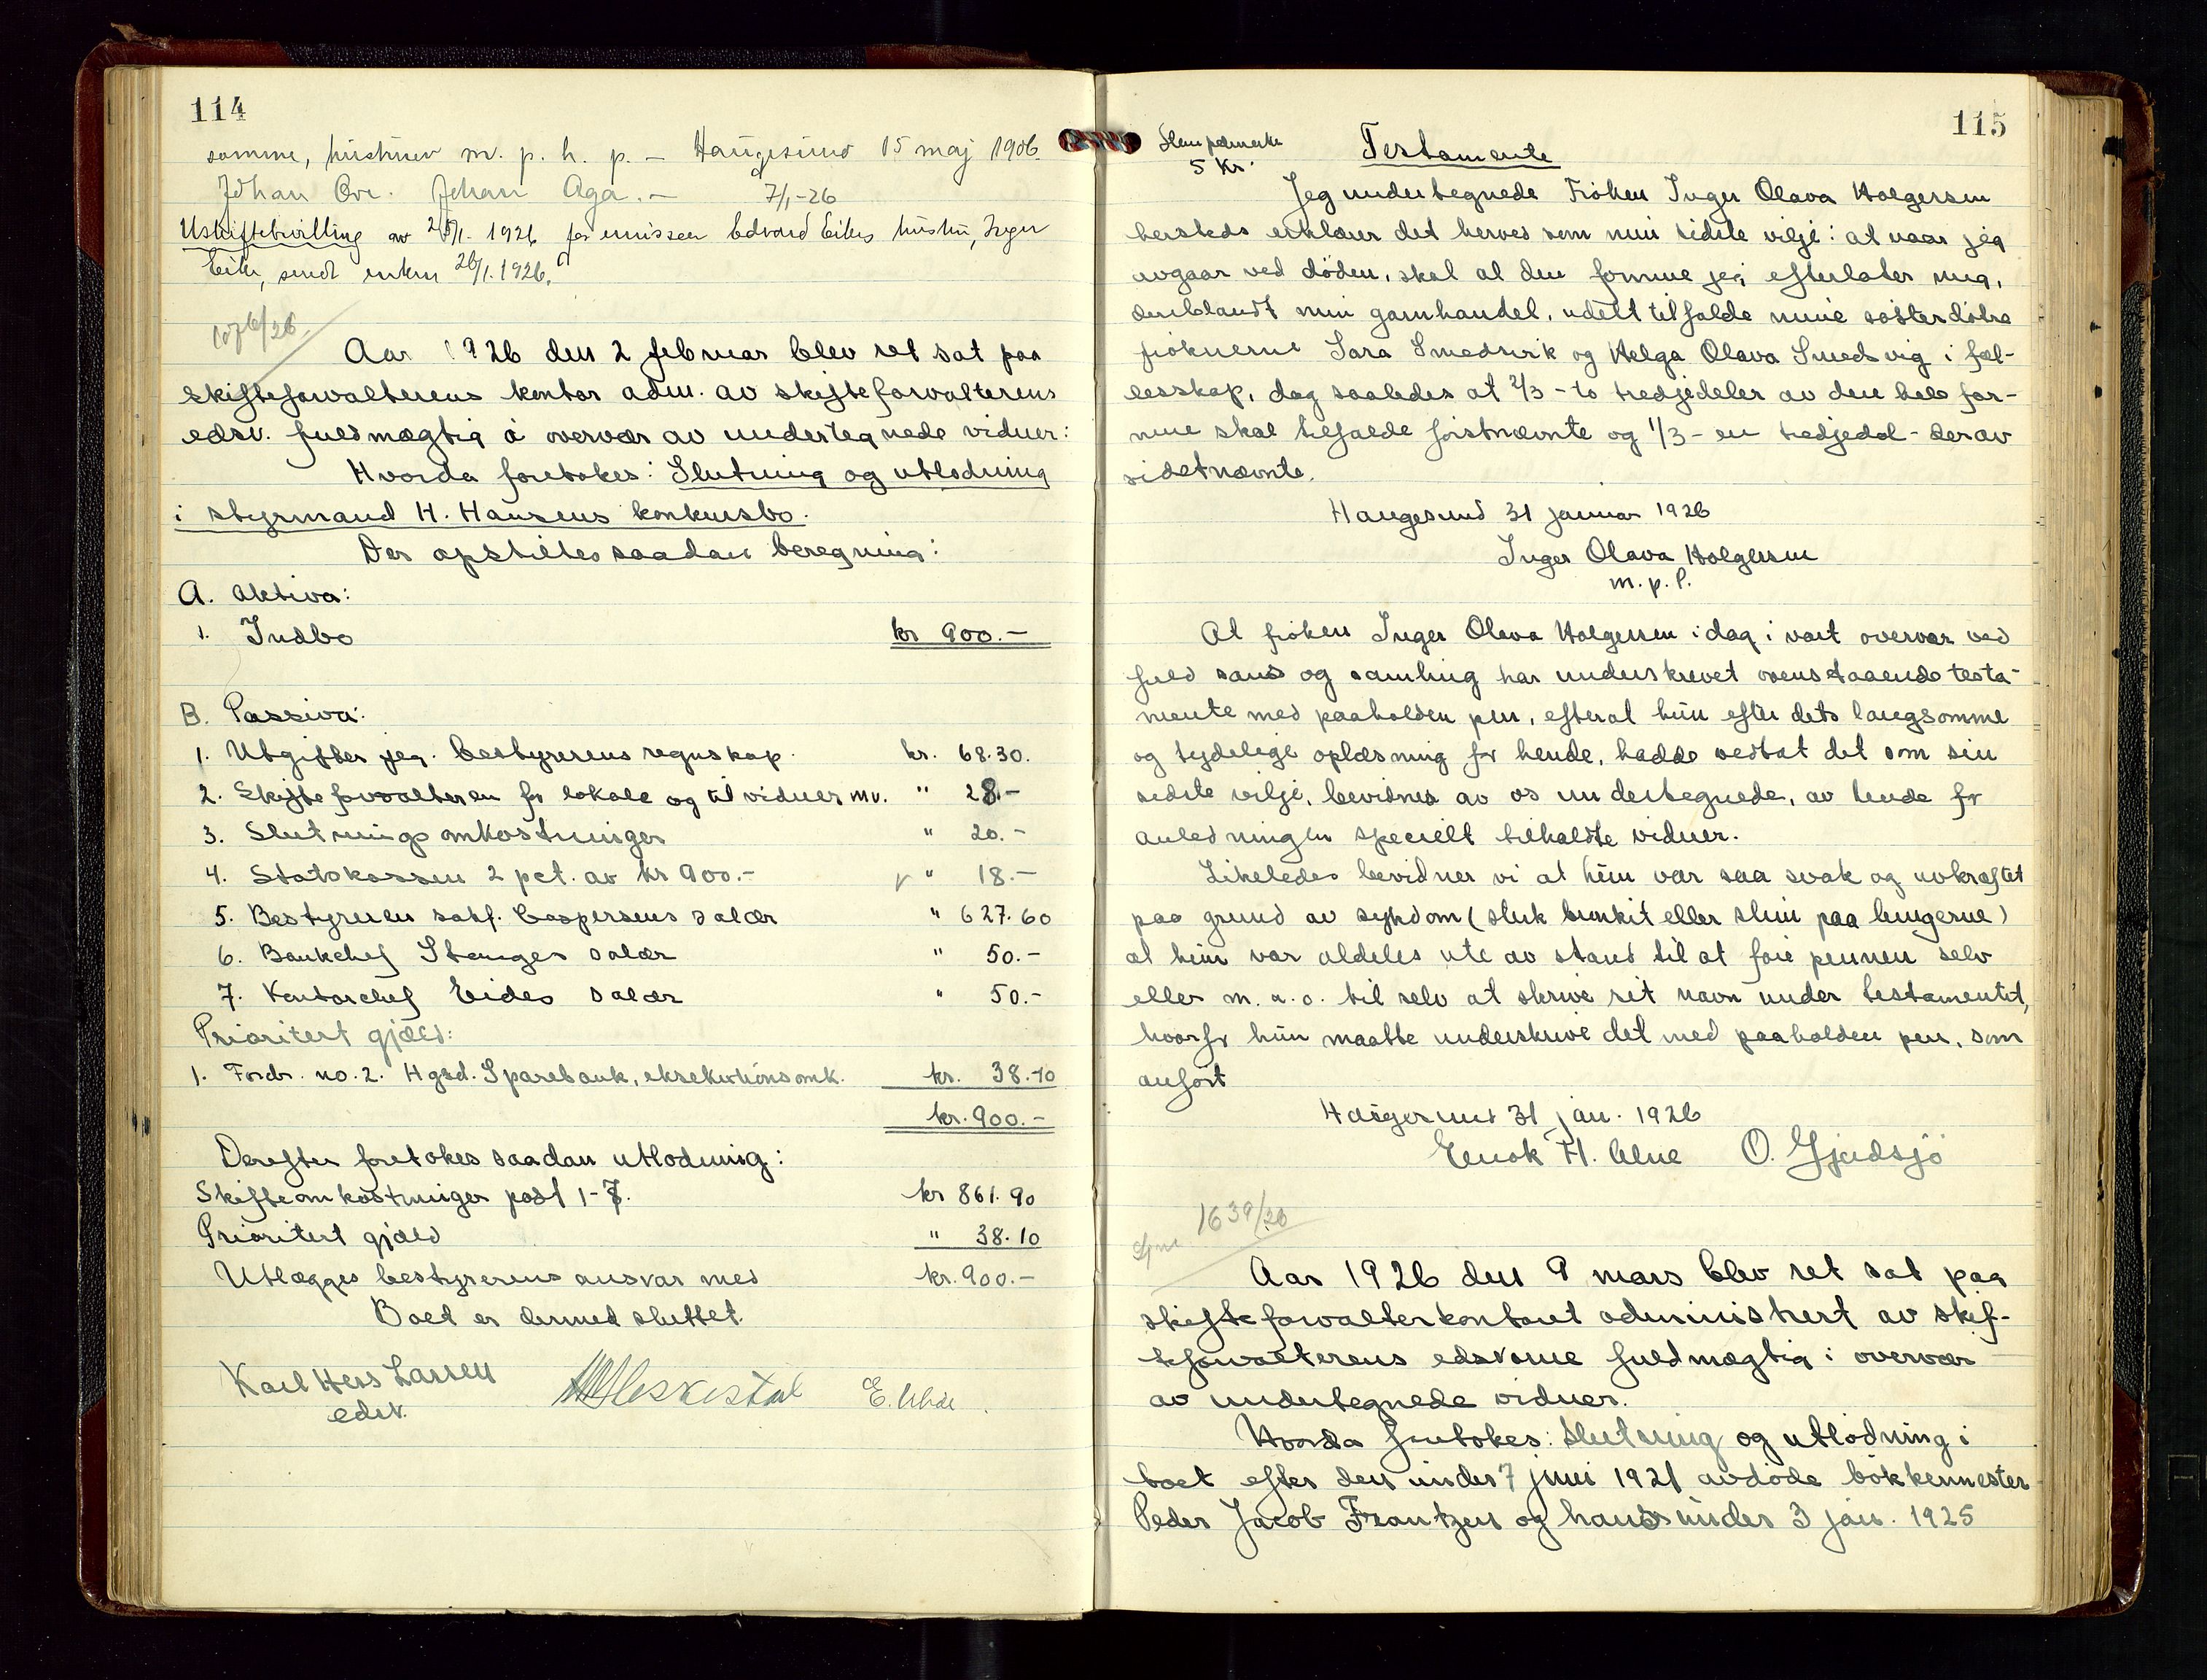 114
samme, hustruer m. p. h. p. – Haugesund 15 maj 1906.
Johan Øvr. Johan Aga. – 7/1-26
Uskiftebevilling av 25/1. 1926 for emissær Edvard Eikes hustru, Inger
Eike, sendt enken 26/1. 1926.
1076/26
Aar 1926 den 2 februar blev ret sat paa
skifteforvalterens kontor adm. av skifteforvalterens
edsv. fuldmægtig i overvær av undertegnede vidner:
Hvorda foretokes: Slutning og utlodning
i styrmand H. Hansens konkursbo.
Der opstiltes saadan beregning:
A. Aktiva:
1. Indbo kr 900.–
B. Passiva:
1. Utgifter jfg. bestyrerens regnskap. kr. 68.30.
2. Skifteforvalteren for lokale og til vidner mv. " 28.–
3. Slutningsomkostninger " 20.–
4. Statskassen 2 pct. av kr 900.– " 18.–
5. Bestyreren sakf. Caspersens salær " 627.60
6. Bankchef Stanges salær " 50.–
7. Kontorchef Eides salær " 50.–
Prioritert gjæld:
1. Fordr. no. 2. Hgsd. Sparebank, eksekutionsomk. kr. 38.10
kr. 900.–
Derefter foretokes saadan utlodning:
Skifteomkostninger post 1-7. kr 861.90
Prioritert gjæld " 38.10
Utlægges bestyrerens ansvar med kr. 900.–
Boet er dermed sluttet.
Karl Hess Larsen
edsv.
Heskestad E. Uhde.
115
Stempelmerke
5 kr.
Testamente
Jeg undertegnede Frøken Inger Olava Holgersen
hersteds erklærer det herved som min sidste vilje: at naar jeg
avgaar ved døden, skal al den formue jeg efterlater mig,
deriblandt min garnhandel, udelt tilfalde mine søsterdøtre
frøknerne Sara Smedsvik og Helga Olava Smedsvig i fæl-
lesskap, dog saaledes at 2/3 – to tredjedeler av den hele for-
mue skal tilfalde førstnævnte og 1/3 – en tredjedel – derav
sidstnævnte.
Haugesund 31 januar 1926
Inger Olava Holgersen
m. p. P.
At frøken Inger Olava Holgersen i dag i vort overvær ved
fuld sans og samling har underskrevet ovenstaaende testa-
mente med paaholden pen, efterat hun efter dets langsomme
og tydelige oplæsning for hende, hadde vedtat det som sin
sidste vilje, bevidnes av os undertegnede, av hende for
anledningen specielt tilkaldte vidner.
Likeledes bevidner vi at hun var saa svak og avkræftet
paa grund av sykdom (sterk bronkit eller slim paa lungerne)
at hun var aldeles ute av stand til at føre pennen selv
eller m. a. o. til selv at skrive sit navn under testamentet,
hvorfor hun maatte underskrive det med paaholden pen, som
anført
Haugesund 31 jan. 1926
Enok H. Alne O. Gjerdsjö
1639/26
Aar 1926 den 9 mars blev ret sat paa
skifteforvalterkontoret administrert av skif-
teforvalterens edsvorne fuldmægtig i overvær
av undertegnede vidner.
Hvorda foretokes: Slutning og utlodning i
boet efter den under 7 juni 1921 avdøde bøkkermester
Peder Jacob Frantzen og hans under 3 jan. 1925